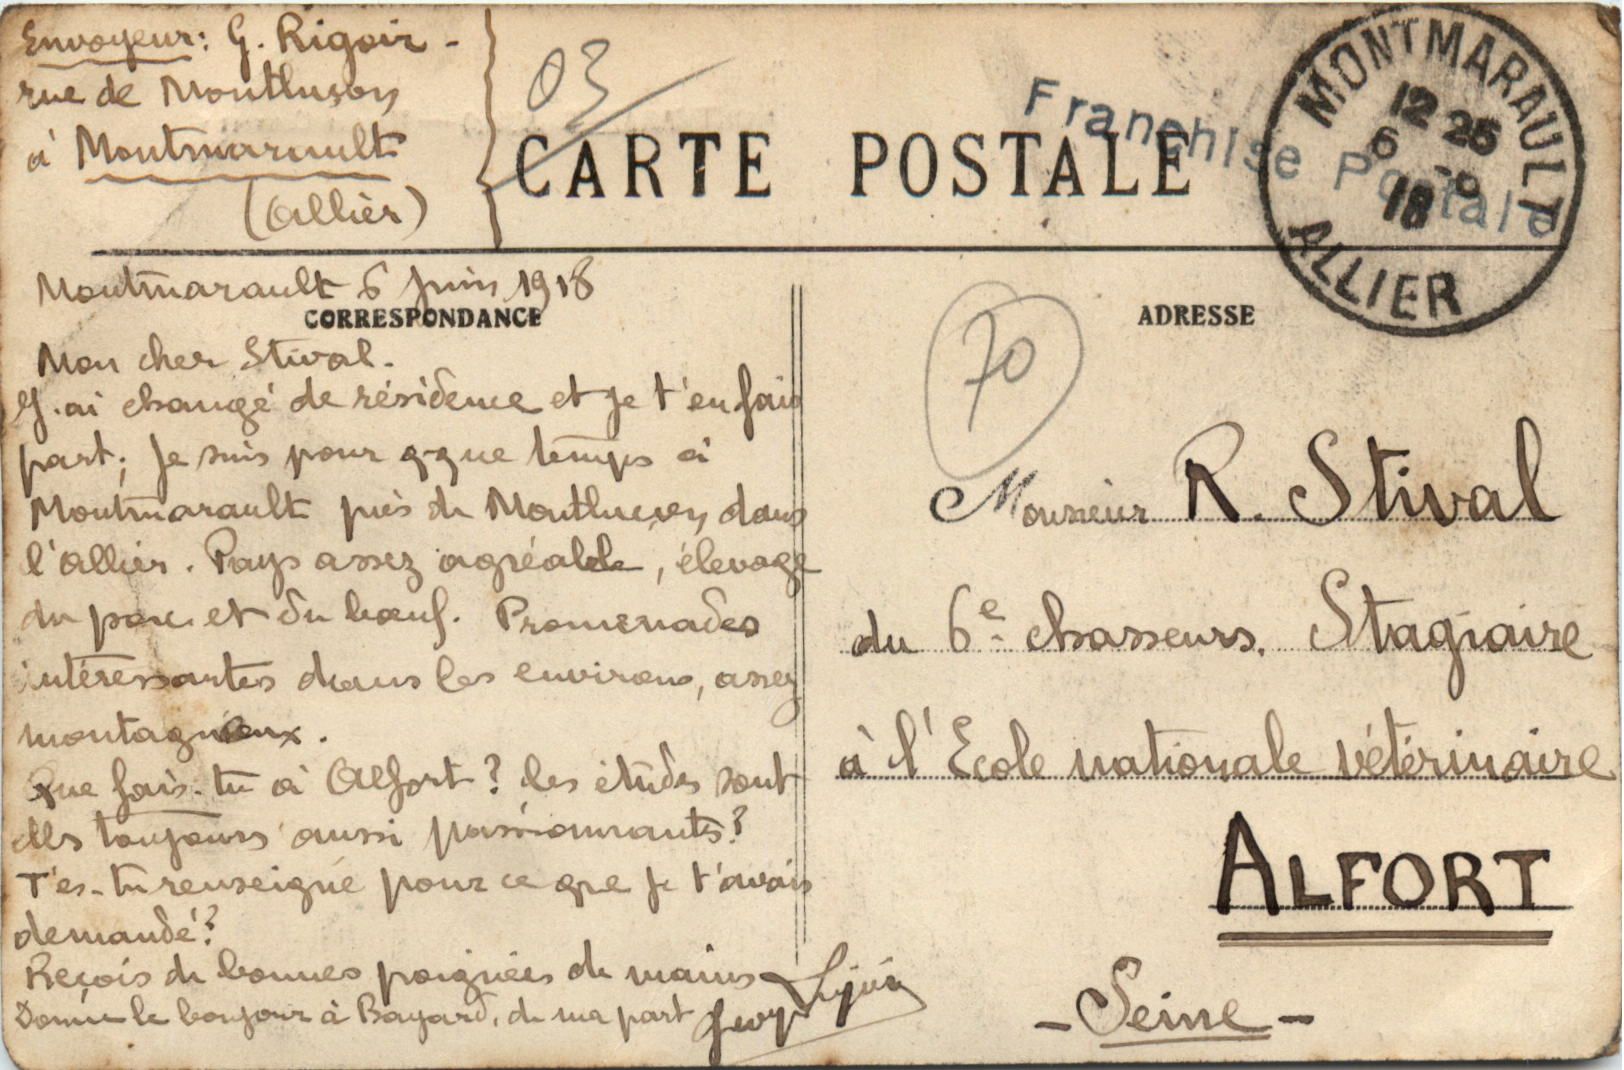 Envoyeur: G. Rigoir -
rue de Montluçon
à Montmarault
(Allier)
03
CARTE POSTALE
Franchise Postale
MONTMARAULT
12 25
6 -6
18
ALLIER
Montmarault 6 Juin 1918
CORRESPONDANCE
Mon cher Stival.
J'ai changé de résidence et je t'en fais
part; Je suis pour qque temps à
Montmarault près de Montluçon, dans
l'Allier. Pays assez agréable, élevage
du porc et du bœuf. Promenades
intéressantes dans les environs, assez
montagneux.
Que fais-tu à Alfort? les études sont
elles toujours aussi passionnants?
T'es-tu renseigné pour ce que je t'avais
demandé?
Reçois de bonnes poignées de mains
Donne le bonjour à Bayard, de ma part
ADRESSE
70
Monsieur R. Stival
du 6e chasseurs. Stagiaire
à l'Ecole nationale vétérinaire
ALFORT
- Seine -